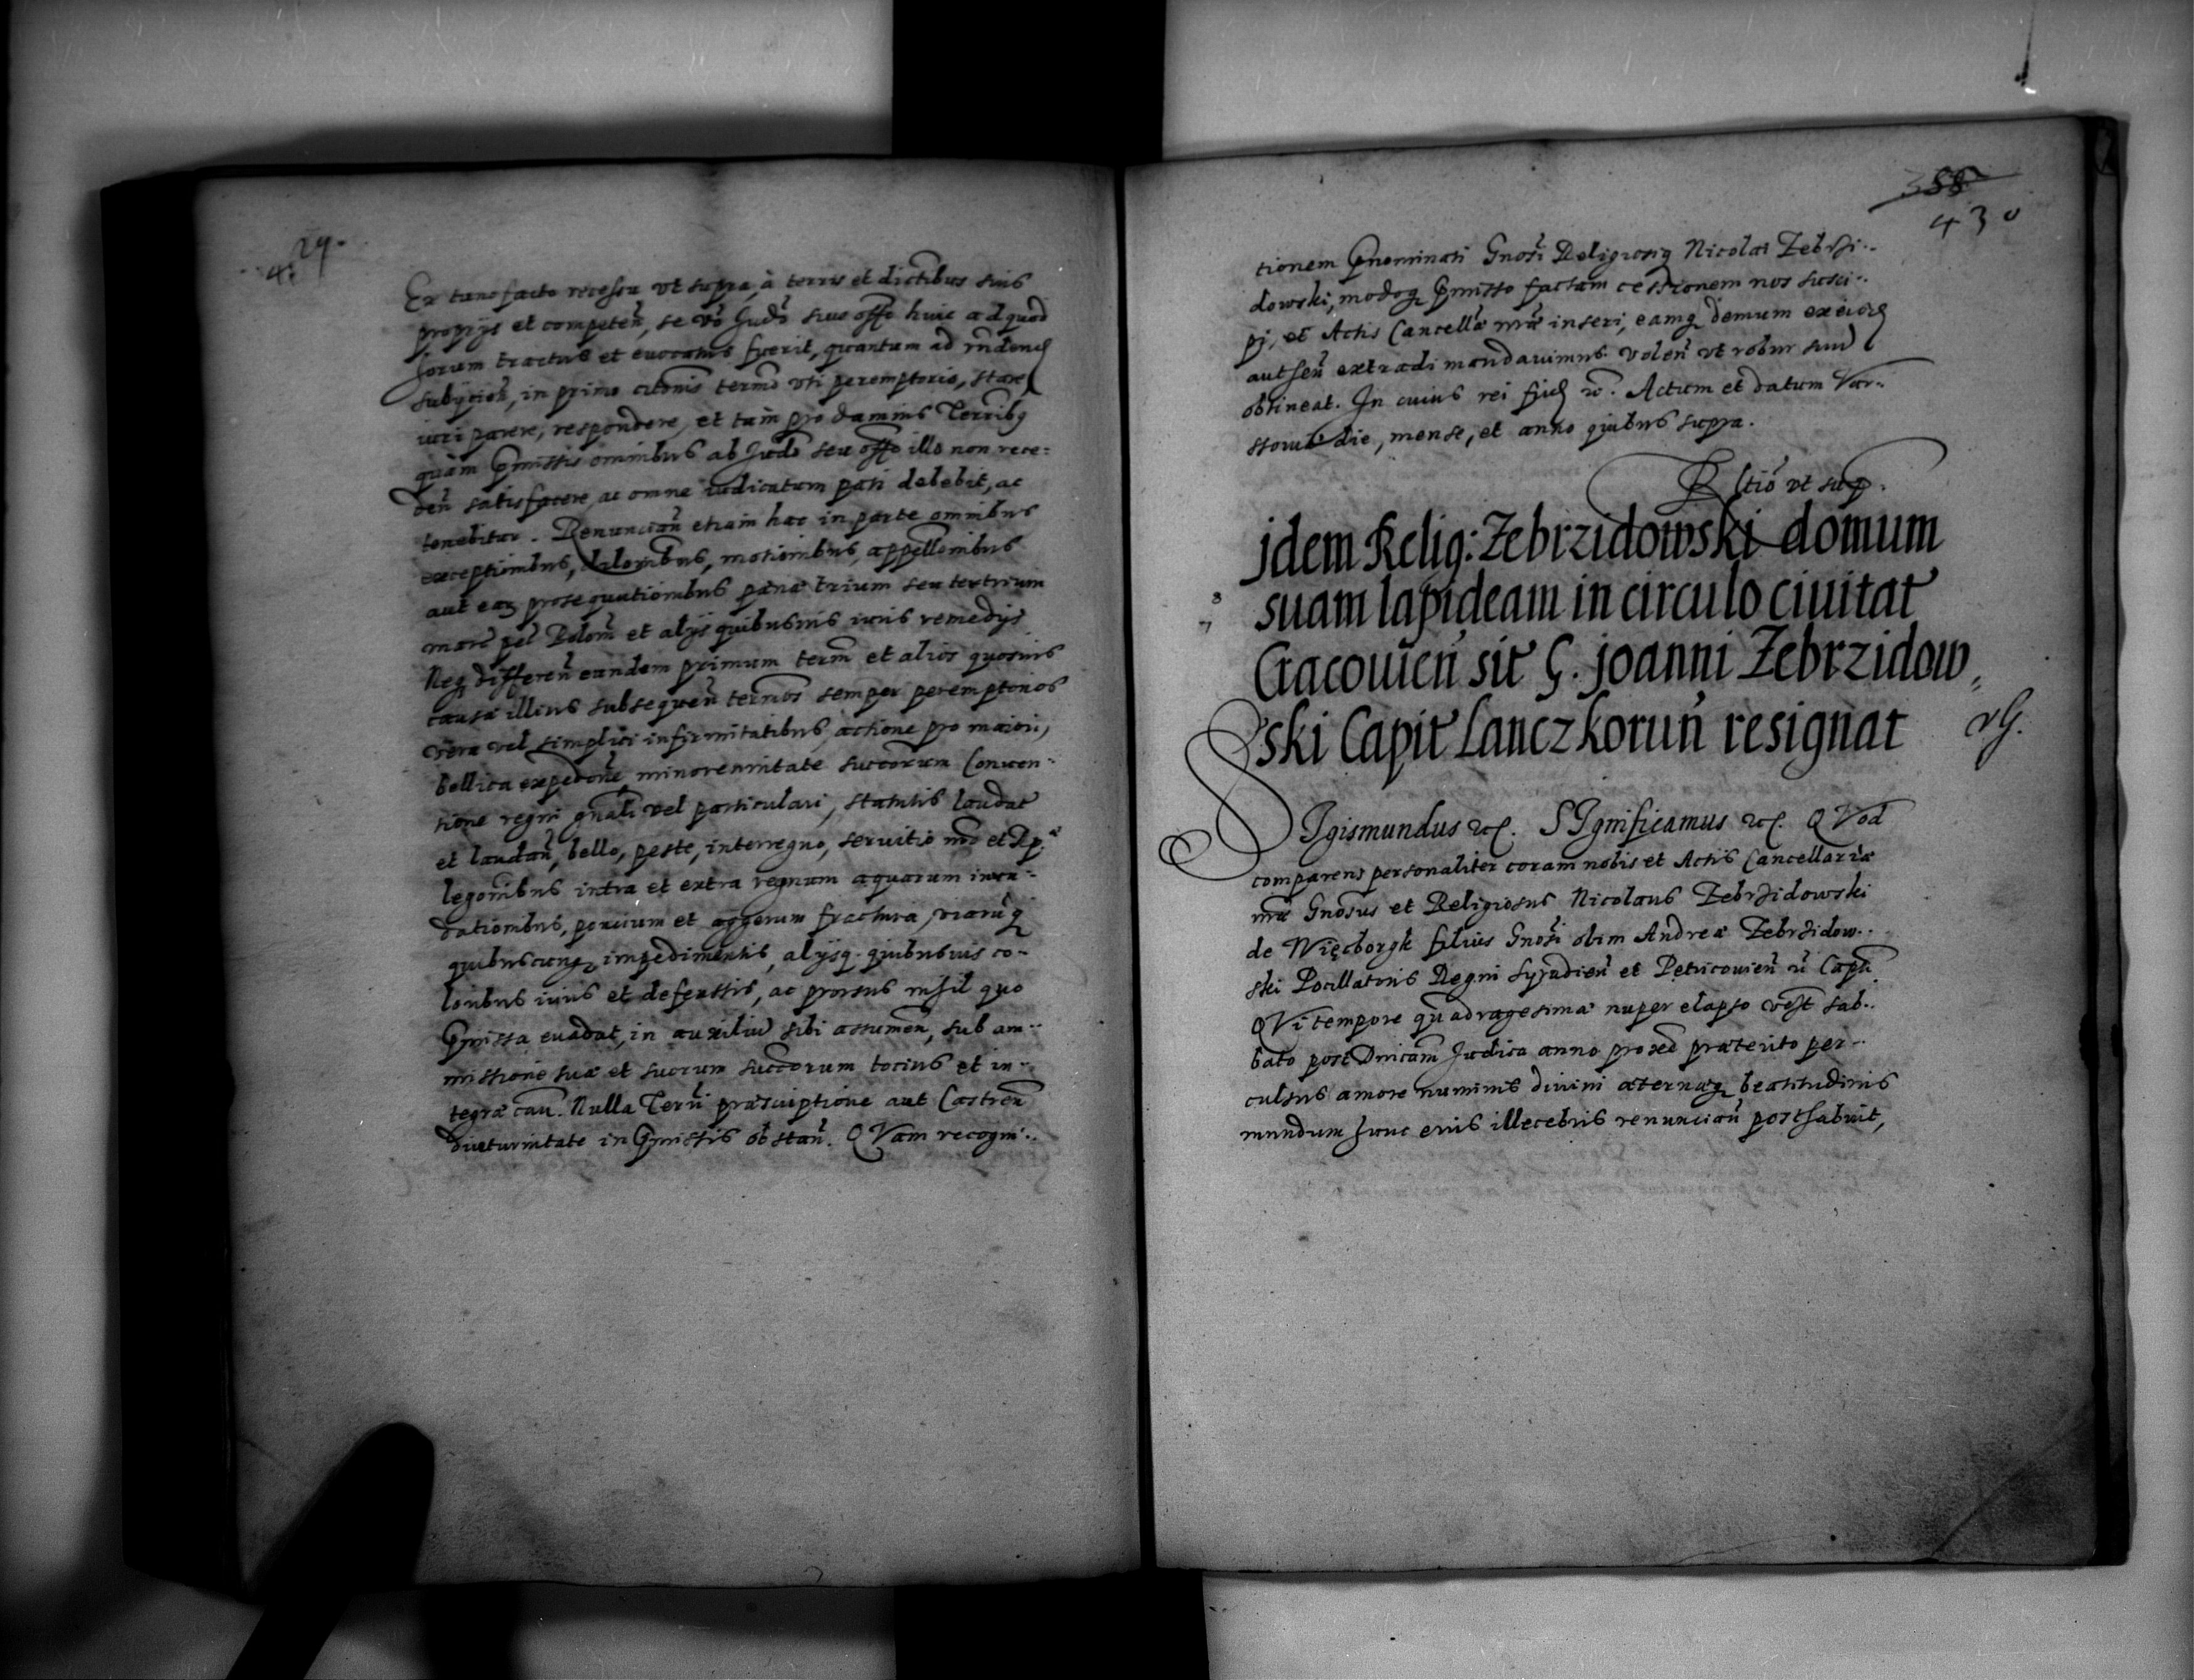 29.
Ex tunc facto recessu vt supra, à terris et dictibus suis
proprys et competeñ, se võ Judõ siue offõ huic ad quod
forum tractus et euocatus fuerit, quantum ad rñdend
subijcień, in primo citõnis termõ vti peremptorio, stare
iuri parere, respondere, et tam pro damnis Terribꝫ
quàm Pmissis omnibus ab Judõ seu offõ illo non rece:
deñ satisfacere, ac omne iudicatum pati debebit, ac
tenebitur. Renunciañ etiam hac in parte omnibus
exceptionibus, dilonibus, motionibus, appellõnibus
aut eaꝝ prosequutionibus pænæ trium seu
marc pec Polon et alijs quibusuis iuris remedijs
Neqꝫ differeñ eundem primum term et alios quosuis
causæ illius subsequeñ termõs semper peremptorios
vera vel simplici infirmitatibus, actione pro maiori,
bellica expedõne minorennitate succorum Conuen-
tione regni gñali vel particulari, statutis laudat
et laudañ, bello, peste, interregno, seruitio nrõ et Rp.
legõnibus intra et extra regnum aquarum inun-
dationibus, pontium et aggerum fractura, viarũqꝫ
quibuscunqꝫ impedimentis, alijsqꝫ quibusuis co-
loribus iuris et defensis, ac prorsus nihil quo
Pmissa euadat, in auxiliũ sibi assumeñ, sub am-
missione suæ et suorum succorum tocius et in-
tegræ cau. Nulla Terrũ præscriptione aut Castreñ
diuturnitate in Pmissis obstañ. QVam recogni-
358
430
tionem Pnominati Gnosi Religiosiqꝫ Nicolai Zebrzi-
dowski, modoqꝫ Pmisso factam cessionem nos susci-
pi, et Actis Cancellæ nræ inseri, eamqꝫ demum
autheñ extradi mandauimus. voleñ vt robur suũ
obtineat. In cuius rei fid. Actum et datum Var-
souiæ die, mense, et anno quibus supra.
Rltiõ vt sup.
jdem Relig: Zebrzidowski domum
suam lapideam in circulo ciuitat
Cracouień sit G. joanni Zebrzidow
ski Capit Lanczkoruñ resignat
SIgismundus etc. SIgnificamus etc. QVod
comparens personaliter coram nobis et Actis Cancellariæ
nræ Gnosus et Religiosus Nicolaus Zebrzidowski
de Więcborgk filius Gnosi olim Andreæ Zebrzidow-
ski Pocillatoris Regni Syradień et Petricouień Capit
QVi tempore quadragesimæ nuper elapso Sab-
bato post Dnicam Judica anno præterito per-
culsus amore numinis diuini æternæqꝫ beatitudinis
mundum hunc eius illecebris renunciañ posthabuit,